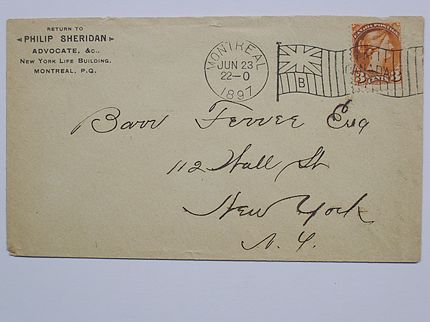 RETURN TO
PHILIP SHERIDAN
ADVOCATE, &c.,
NEW YORK LIFE BUILDING,
MONTREAL, P.Q.
MONTREAL
JUN 23
22-0
1897
B
3 3
Barr Ferree Esq
112 Wall St
New York
N. Y.